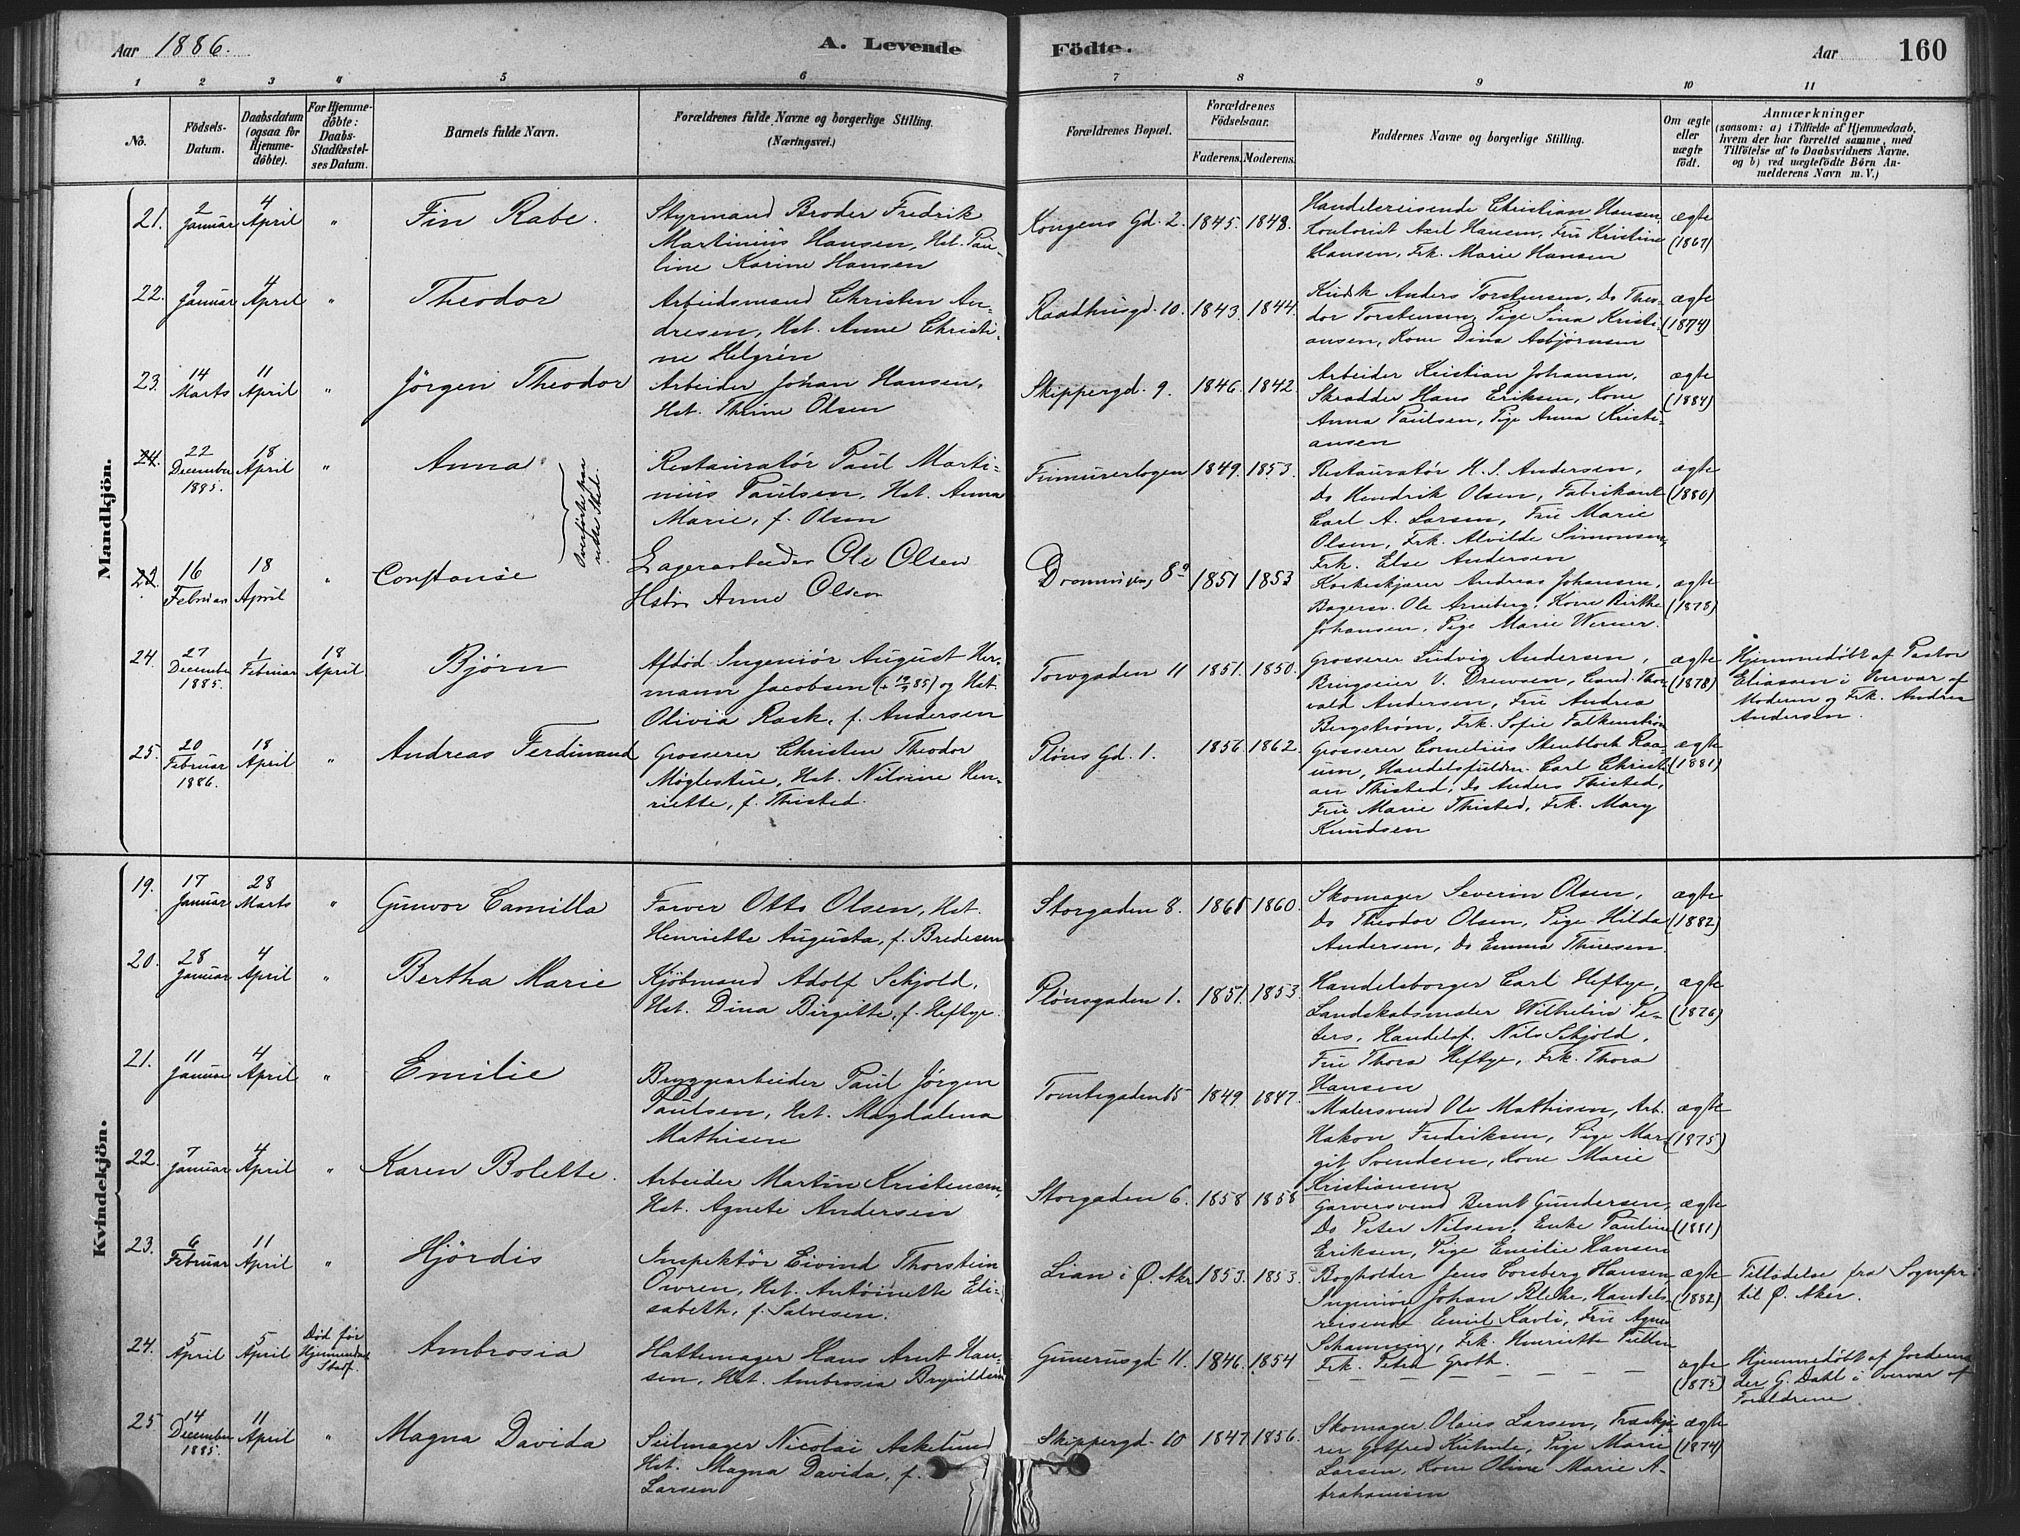 Aar 1886.
A. Levende Födte.
Aar
160
1 2 3 4 5 6 7 8 9 10 11
No.
Födsels-Datum.
Daabsdatum (ogsaa for Hjemmedöbte).
For Hjemmedöbte: Daabs-Stadfæstelses Datum.
Barnets fulde Navn.
Forældrenes fulde Navne og borgerlige Stilling.
(Næringsvei.)
Forældrenes Bopæl.
Forældrenes Födselsaar.
Faderens. Moderens.
Faddernes Navne og borgerlige Stilling.
Om ægte eller uægte födt.
Anmærkninger
(saasom: a) i Tilfælde af Hjemmedaab,
hvem der har forrettet samme, med
Tilföielse af to Daabsvidners Navne,
og b) ved uægtefödte Börn An-
melderens Navn m. V.)
Mandkjön.
21. 2 Januar 4 April " Fin Rabe.
Styrmand Broder Fredrik
Martinius Hansen, Hst. Pau-
line Karine Hansen
Kongens Gd. 2. 1845. 1848.
Handelsreisende Christian Hansen,
Kontorist Axel Hansen, Fru Kristine
Hansen, Frk. Marie Hansen
ægte (1867)
22. 9 Januar 4 April " Theodor
Arbeidsmand Christen An-
dresen, Hst. Anne Christi-
ne Helgrén
Raadhusgd. 10. 1843. 1844.
Kudsk Anders Torstensen, Do Theo-
dor Torstensen, Pige Sina Kristi-
ansen, Kone Dina Asbjørnsen
ægte (1874)
23. 14 Marts 11 April " Jörgen Theodor
Arbeider Johan Hansen,
Hst. Thrine Olsen
Skippergd. 9. 1846. 1842
Arbeider Kristian Johansen,
Skrædder Hans Eriksen, Kone
Anna Paulsen, Pige Anna Kristi-
ansen
ægte (1884)
24. 22 December 1885. 18 April " Anna
Overførte paa rette Sted.
Restauratør Paul Marti-
nius Paulsen, Hst. Anna
Marie, f. Olsen
Frimurerlogen 1849. 1853.
Restauratør H. S. Andersen,
Do Hendrik Olsen, Fabrikant
Carl A. Larsen, Fru Marie
Olsen, Frk. Alvilde Simonsen,
Frk. Else Andersen
ægte (1880)
16 Februar 18 April " Constanse
Lagerarbeider Ole Olsen
Hstru Anne Olsen
1851 1853
Korkeskjærer Andreas Johansen,
Bagersv. Ole Arneberg, Kone Birthe
Johansen, Pige Marie Werner.
ægte (1878)
24. 27 December 1885. 1 Februar 18 April Bjørn
Afdød Ingeniör August Her-
mann Jacobsen (+ 19/9 85) og Hst.
Olivia Rask, f. Andersen
Torvgaden 11 1851. 1850.
Grosserer Ludvig Andersen,
Brugseier V. Drewsen, Cand. Thor-
vald Andersen, Fru Andrea
Bergstrøm, Frk. Sofie Falkenstrøm
ægte (1878)
Hjemmedøbt af Pastor
Eliassen i Overvær af
Moderen og Frk. Andrea
Andersen.
25. 20 Februar 1886. 18 April " Andreas Ferdinand
Grosserer Christen Theodor
Møglestue, Hst. Nilsine Hen-
riette, f. Thisted.
Pløns Gd. 1. 1856 1862.
Grosserer Cornelius Stenbloch Raa-
um, Handelsfuldm. Carl Christi-
an Thisted, Do Anders Thisted,
Fru Marie Thisted, Frk. Mary
Knudsen
ægte (1881)
Kvindekjön.
19. 17 Januar 28 Marts " Gunvor Camilla
Farver Otto Olsen, Hst.
Henriette Augusta, f. Bredesen
Storgaden 8. 1860.
Skomager Severin Olsen,
Do Theodor Olsen, Pige Hilda
Andersen, Do Emma Thuesen.
ægte (1882)
20. 28 Januar 4 April " Bertha Marie
Kjöbmand Adolf Schjold,
Hst. Dina Birgitte, f. Heftye.
Plönsgaden 1. 1851. 1853.
Handelsborger Carl Heftye,
Landskabsmaler Wilhelm Pe-
ters, Handelsf. Nils Schjold,
Fru Thora Heftye, Frk. Thora
Hansen
ægte (1876)
21. 11 Januar 4 April " Emilie
Bryggearbeider Paul Jørgen
Paulsen, Hst. Magdalena
Mathisen
Tomtegaden 15 1849. 1847.
Malersvend Ole Mathisen, Arb.
Hakon Fredriksen, Pige Mar-
git Svendsen, Kone Marie
Kristiansen
ægte (1875)
22. 7 Januar 4 April " Karen Bolette.
Arbeider Martin Kristensen,
Hst. Agnete Andersen
Storgaden 6. 1858 1858
Garversvend Bernt Gundersen,
Do Peter Nilsen, Enke Pauline
Eriksen, Pige Emilie Hansen
ægte (1881)
23. 6 Februar 11 April " Hjördis
Inspektör Eivind Thorstein
Owren, Hst. Antoinette Eli-
sabeth, f. Salvesen.
Lian i Ø. Aker 1853. 1853.
Bogholder Jens Corsberg Hansen,
Ingeniør Johan Blehr, Handels-
reisende Emil Kavli, Fru Agnes
Frk. Henriette
Frk. Petra Groth.
ægte (1882)
Tilladelse fra Sognepr.
til Ø. Aker.
24. 5 April 5 April Død før Hjemmedaab Stadf. Ambrosia
Hattemager Hans Arnt Han-
sen, Hst. Ambrosia Brynildsen
Gunerusgd. 11. 1846. 1854
ægte (1875)
Hjemmedøbt af Jordemo-
der G. Dahl i Overvær af
Forældrene
25 14 December 1885. 11 April " Magna Davida
Seilmager Nicolai Askelund
Hst. Magna Davida, f.
Larsen
Skippergd. 10 1847. 1856.
Skomager Olaus Larsen, Træskjæ-
rer Gotfred Kühnle, Pige Marie
Larsen, Kone Oline Marie A-
brahamsen
ægte (1874)